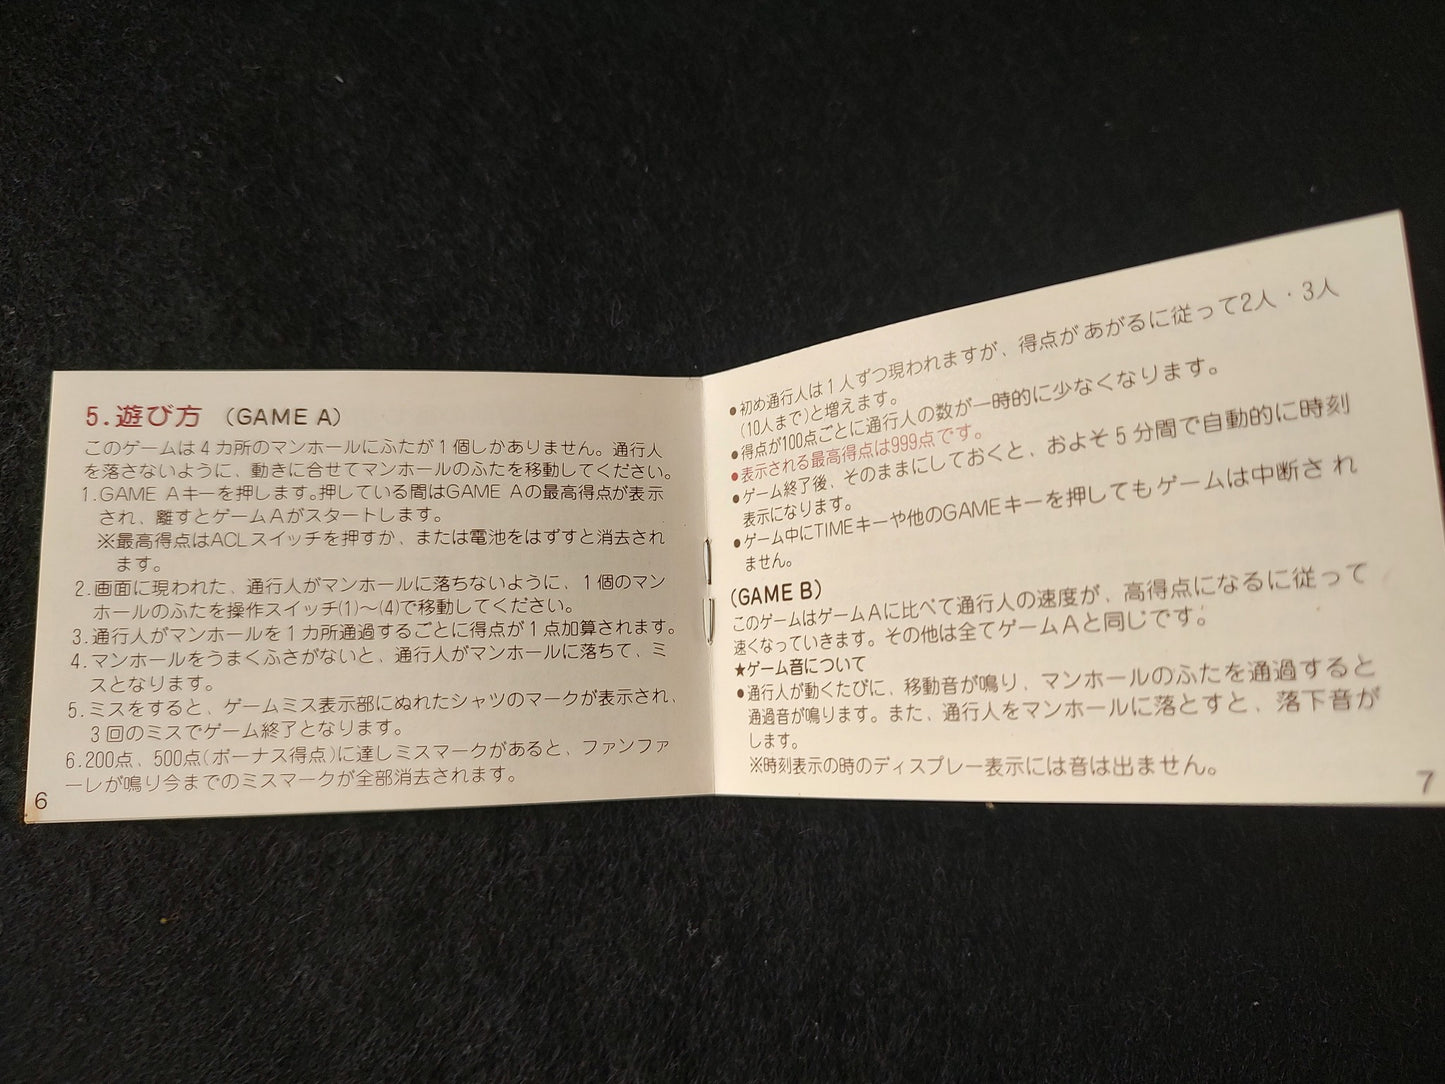 5.遊び方 (GAME A)
このゲームは4カ所のマンホールにふたが1個しかありません。通行人
を落さないように、動きに合せてマンホールのふたを移動してください。
1.GAME Aキーを押します。押している間はGAME Aの最高得点が表示
され、離すとゲームAがスタートします。
※最高得点はACLスイッチを押すか、または電池をはずすと消去され
ます。
2.画面に現われた、通行人がマンホールに落ちないように、1個のマン
ホールのふたを操作スイッチ(1)〜(4)で移動してください。
3.通行人がマンホールを1カ所通過するごとに得点が1点加算されます。
4.マンホールをうまくふさがないと、通行人がマンホールに落ちて、ミ
スとなります。
5.ミスをすると、ゲームミス表示部にぬれたシャツのマークが表示され、
3回のミスでゲーム終了となります。
6.200点、500点(ボーナス得点)に達しミスマークがあると、ファンファ
ーレが鳴り今までのミスマークが全部消去されます。
6
●初め通行人は1人ずつ現われますが、得点があがるに従って2人・3人
(10人まで)と増えます。
●得点が100点ごとに通行人の数が一時的に少なくなります。
●表示される最高得点は999点です。
●ゲーム終了後、そのままにしておくと、およそ5分間で自動的に時刻
表示になります。
●ゲーム中にTIMEキーや他のGAMEキーを押してもゲームは中断され
ません。
(GAME B)
このゲームはゲームAに比べて通行人の速度が、高得点になるに従って
速くなっていきます。その他は全てゲームAと同じです。
★ゲーム音について
●通行人が動くたびに、移動音が鳴り、マンホールのふたを通過すると
通過音が鳴ります。また、通行人をマンホールに落とすと、落下音が
します。
※時刻表示の時のディスプレー表示には音は出ません。
7